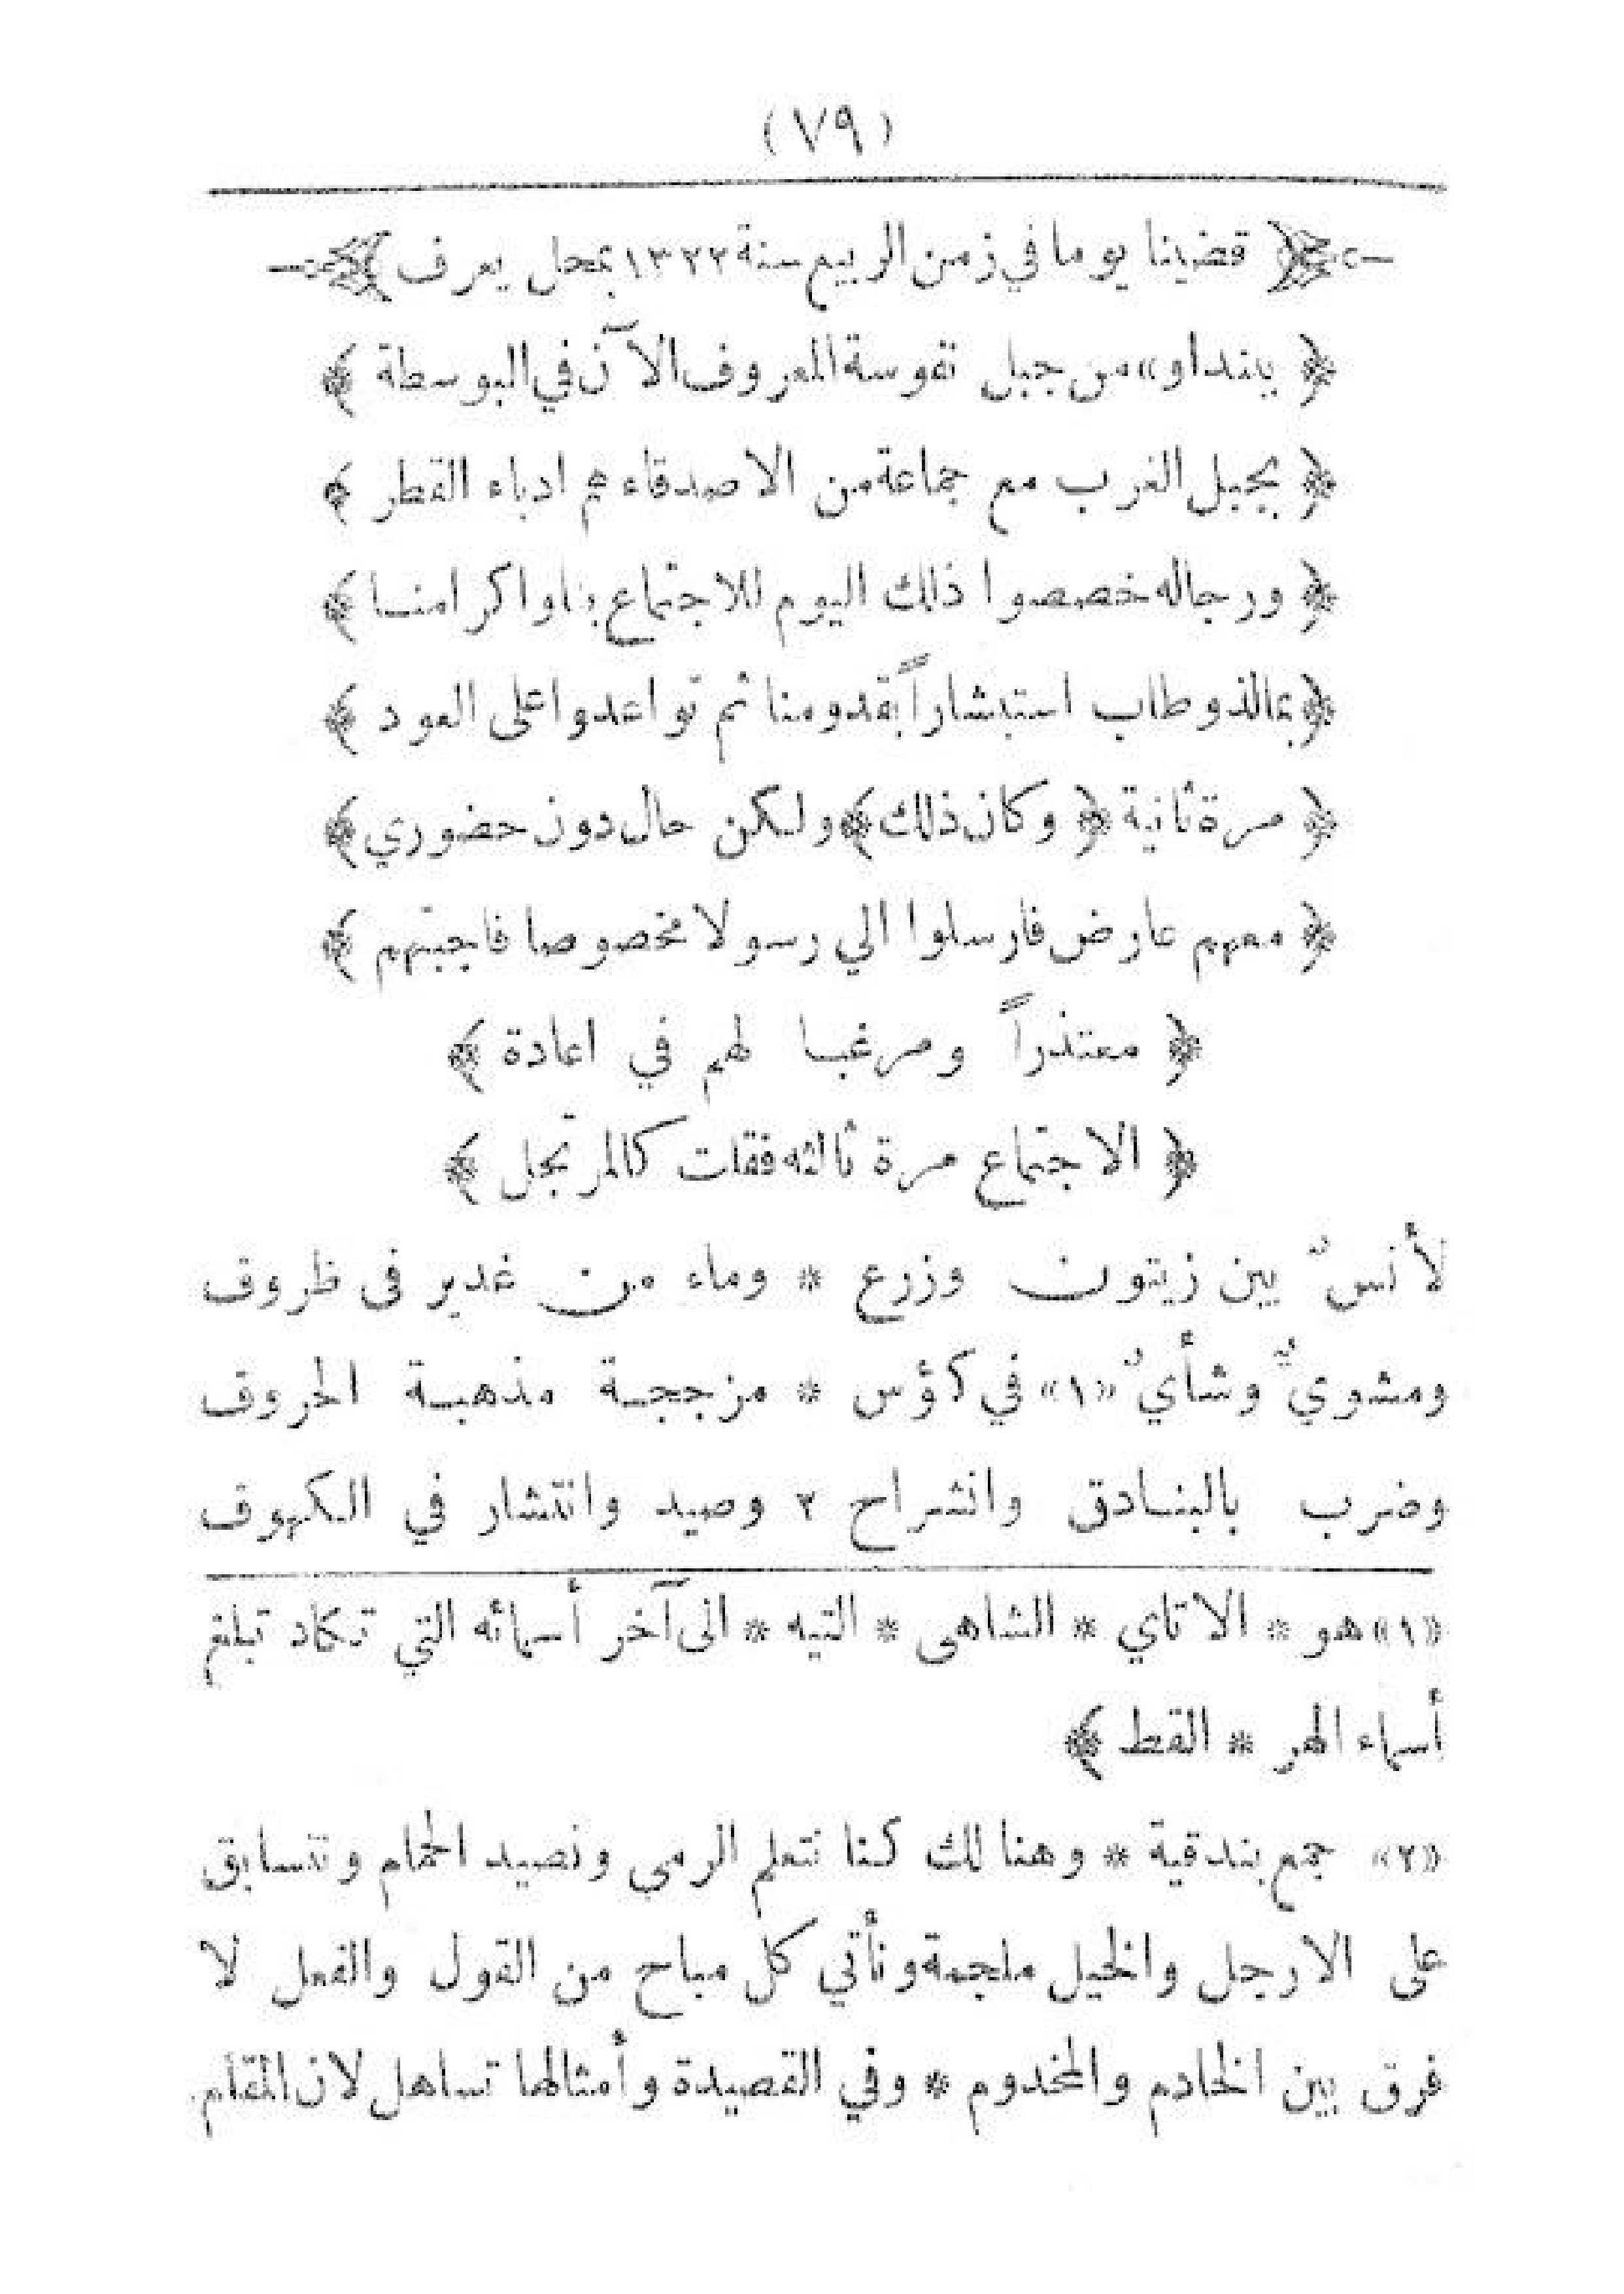 (٧٩)
﴿ قضينا يوما في زمن الربيع سنة ١٣٢٢ بمحل يعرف ﴾
﴿ بنداو» من جبل نفوسة المعروف الآن في البوسطة ﴾
﴿ بجبل الغرب مع جماعة من الاصدقاء هم ادباء القطر ﴾
﴿ ورجاله خصصوا ذلك اليوم للاجتماع بنا واكرامنا ﴾
﴿ بمالذ وطاب استبشاراً بقدومنا ثم تواعدوا على العود ﴾
﴿ مرة ثانية ﴿ وكان ذلك ﴾ ولكن حال دون حضوري ﴾
﴿ معهم عارض فارسلوا الي رسولا مخصوصا فاجبتهم ﴾
﴿ معتذراً ومرغبا لهم في اعادة ﴾
﴿ الاجتماع مرة ثالثه فقلت كالمرتجل ﴾
لأنسٌ بين زيتون وزرع * وماء من غدير فى ظروف
ومشويٌ وشأيٌ «١» في كؤس * مزججة مذهبة الحروف
وضرب بالبنادق وانشراح ٢ وصيد وانتشار في الكهوف
«١» هو * الاتاي * الشاهى * التيه * الى آخر أسمائه التي تكاد تبلغ
أسماء الهر * القط ﴾
«٢» جمع بندقية * وهنالك كنا نتعلم الرمي ونصيد الحمام ونتسابق
على الارجل والخيل ملجمة ونأتي كل مباح من القول والفعل لا
فرق بين الخادم والمخدوم * وفي القصيدة وأمثالها تساهل لان المقام